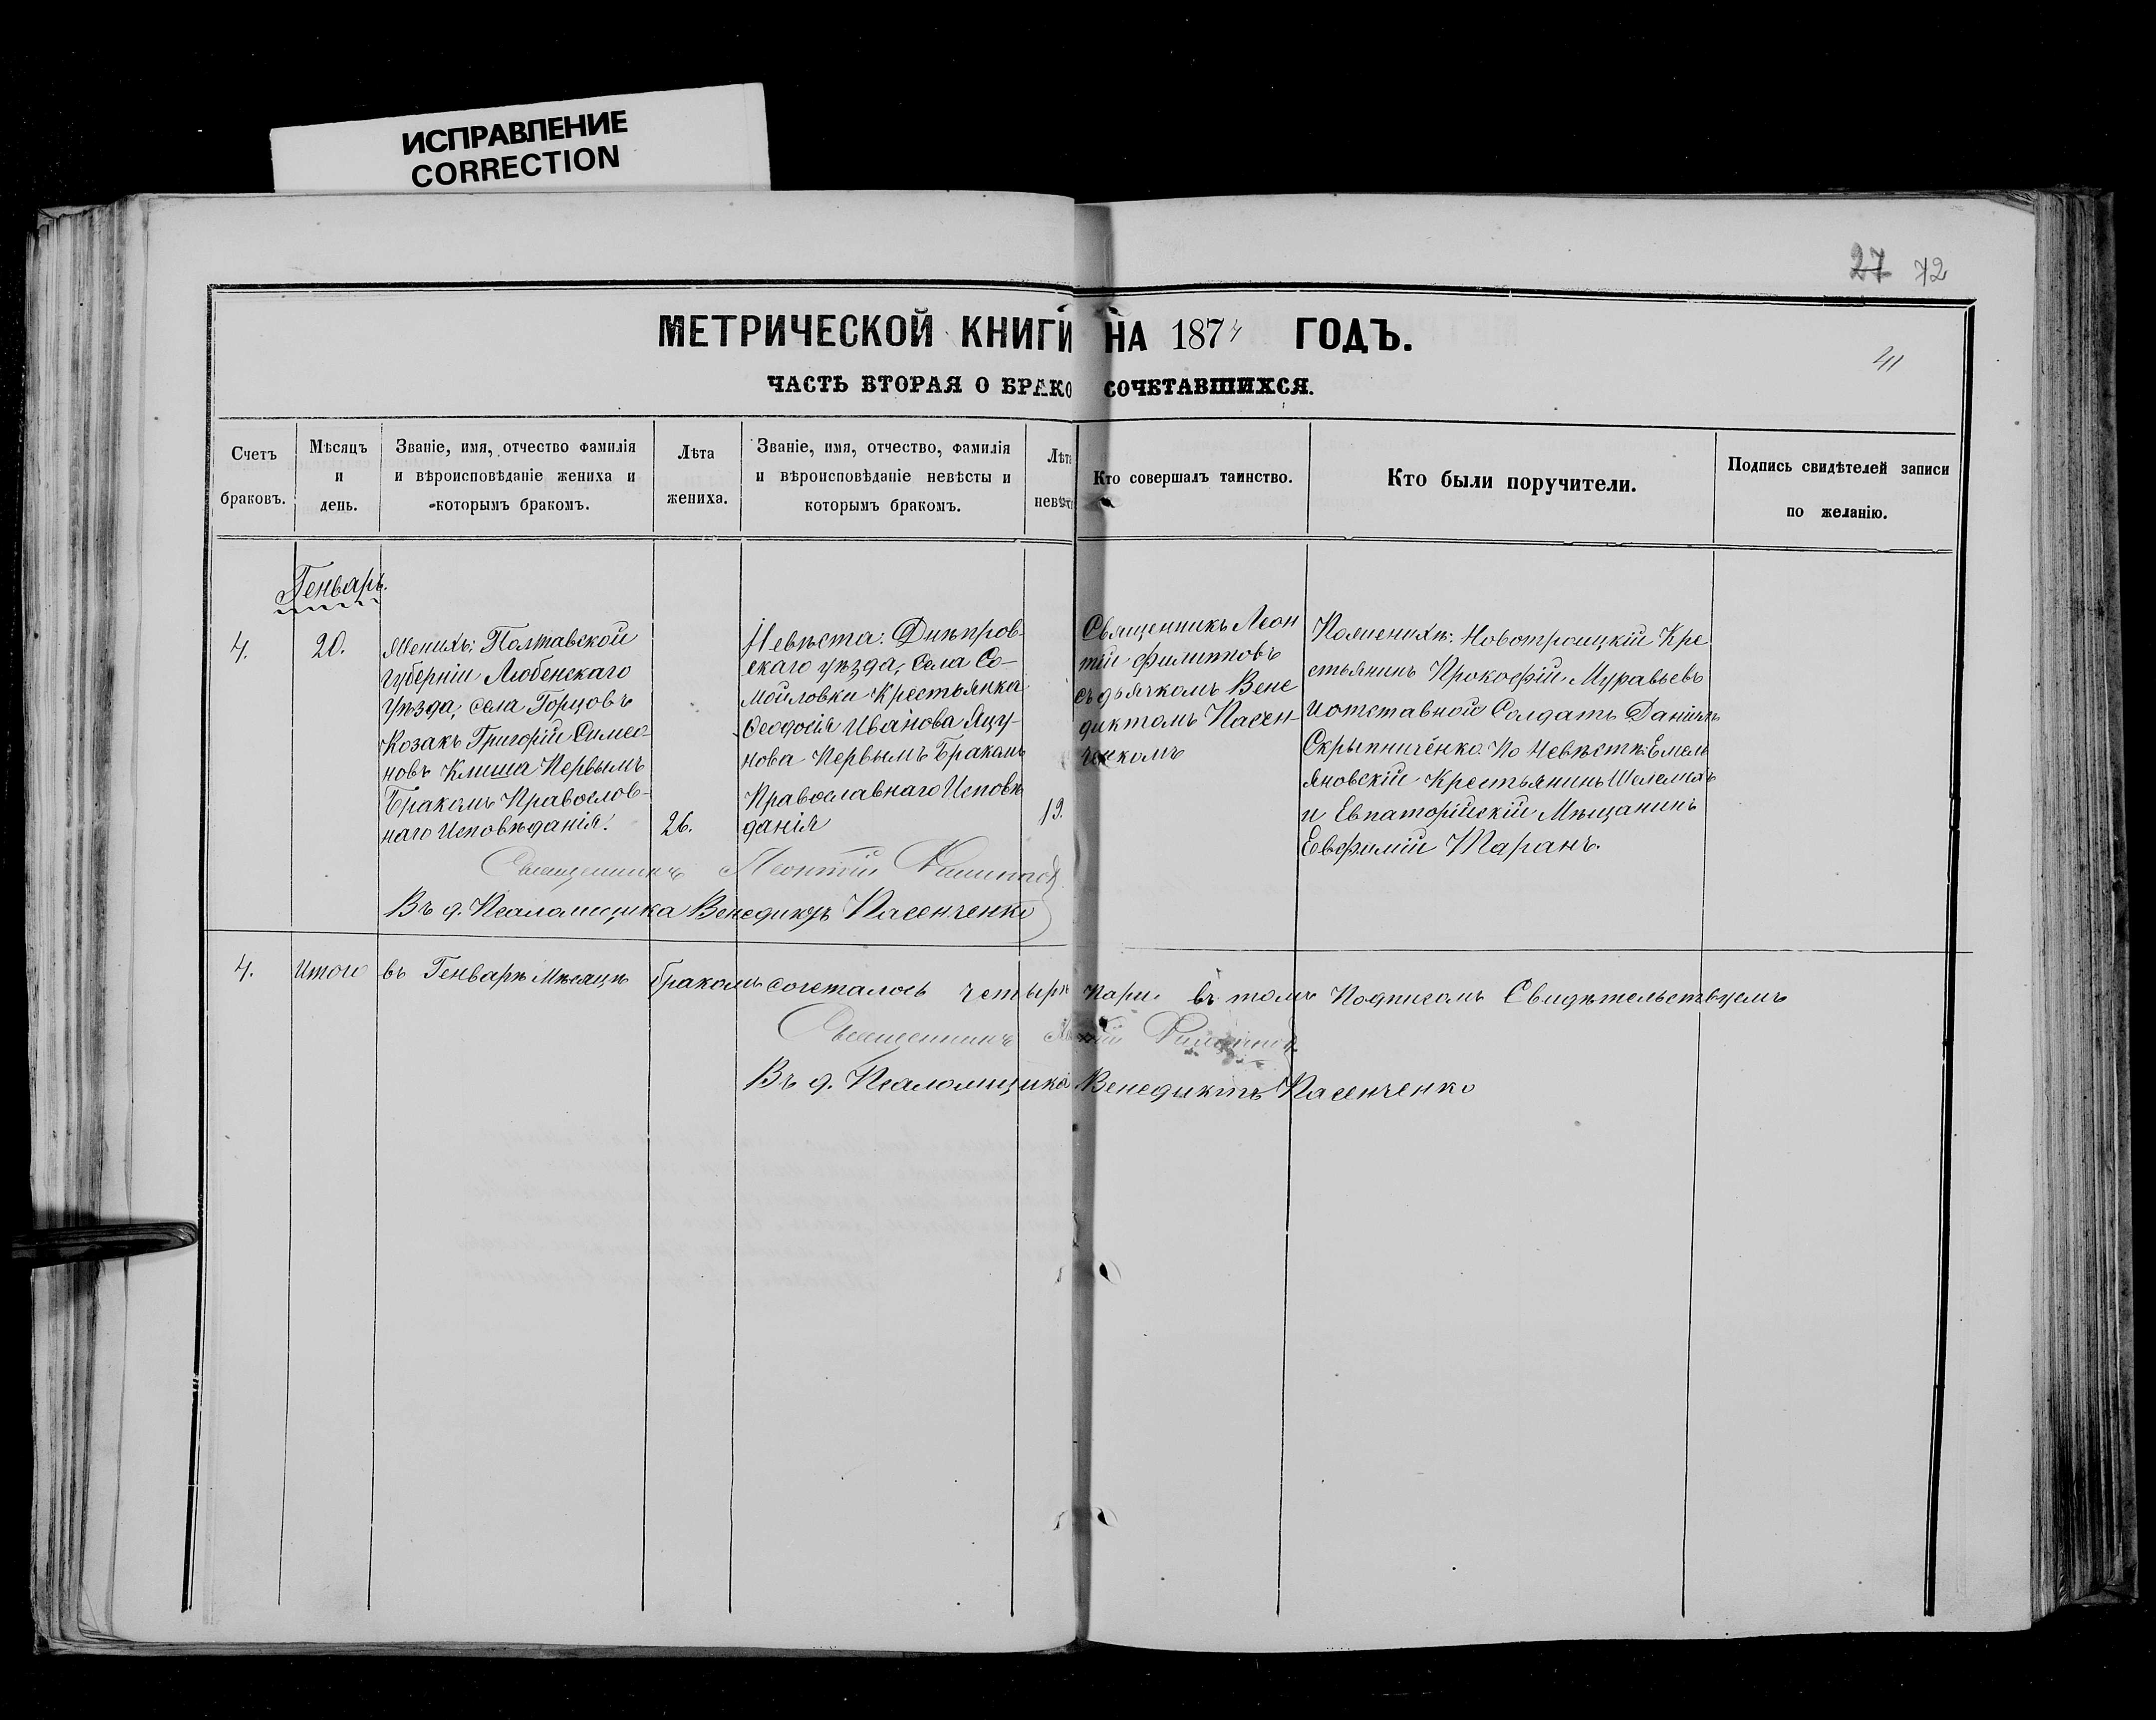 ИСПРАВЛЕНИЕ
CORRECTION
27 72
МЕТРИЧЕСКОЙ КНИГИ НА 1874 ГОДЪ.
41
ЧАСТЬ ВТОРАЯ О БРАКОСОЧЕТАВШИХСЯ.
Счетъ
браковъ.
Мѣсяцъ
и
день.
Званіе, имя, отчество фамилія
и вѣроисповѣданіе жениха и
которымъ бракомъ.
Лѣта
жениха.
Званіе, имя, отчество, фамилія
и вѣроисповѣданіе невѣсты и
которымъ бракомъ.
Лѣта
невѣс
Кто совершалъ таинство.
Кто были поручители.
Подпись свидѣтелей записи
по желанію.
Генварь.
4.
20.
Женихъ: Полтавской
губерніи Любенскаго
уѣзда, села Горцовъ
Козакъ Григорій Симео
новъ Клиша Первымъ
Бракомъ Православ-
наго Исповѣданія.
26.
Невѣста: Днѣпров-
скаго уѣзда, села Со-
мойловки Крестьянка
Феодосія Иванова Яцу-
нова Первымъ Бракомъ
Православнаго Исповѣ
данія
19.
Священникъ Леон
тій Филипповъ
съ дьячкомъ Вене
диктомъ Пасен-
ченкомъ
По женихѣ: Новотроицкій Кре
стьянинъ Прокофій Муравьевъ
и отставной Солдатъ Даніилъ
Скрыпниченко. По Невѣстѣ: Емель
яновскій Крестьянинъ
и Евпаторійскій Мѣщанинъ
Евфимій Таранъ.
Священникъ Леонтій Филиповъ
Въ д. Псаломщика Венедиктъ Пасенченко
4. Итого въ Генварѣ Мѣсяцѣ бракомъ сочеталось четыре пари. въ томъ Подписомъ Свидѣтельствуемъ
Священникъ Леонтій Филиповъ
Въ д. Псаломщика Венедиктъ Пасенченко